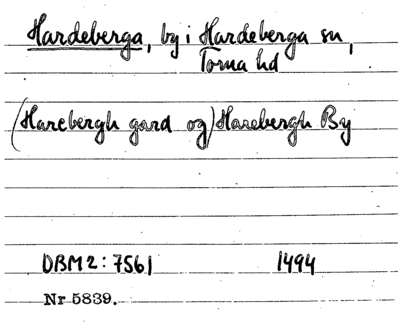 Hardeberga, by i Hardeberga sn,
Torna hd
(Harebergh gard og) Harebergh By
DBM2:7561 1494
Nr 5839.